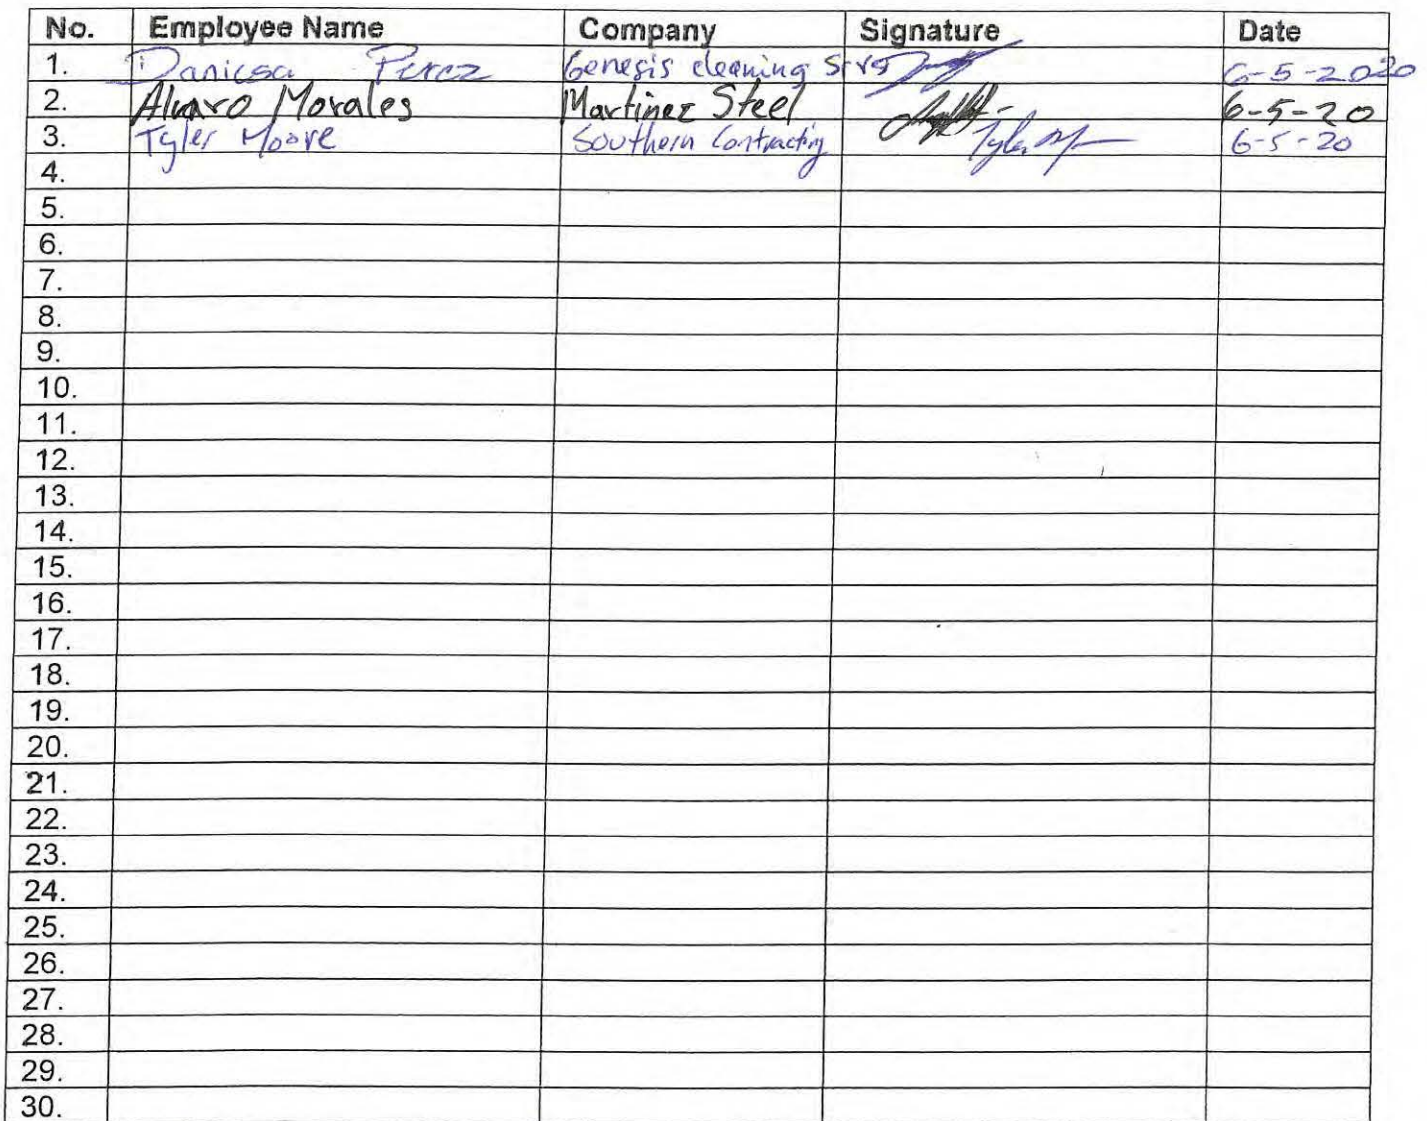 No. Employee Name Company Signature Date
1. Danicsa Perez Genesis cleaning Srvs 6-5-2020
2. Alvaro Morales Martinez Steel 6-5-20
3. Tyler Moore Southern Contracting Tyler M 6-5-20
4.
5.
6.
7.
8.
9.
10.
11.
12.
13.
14.
15.
16.
17.
18.
19.
20.
21.
22.
23.
24.
25.
26.
27.
28.
29.
30.